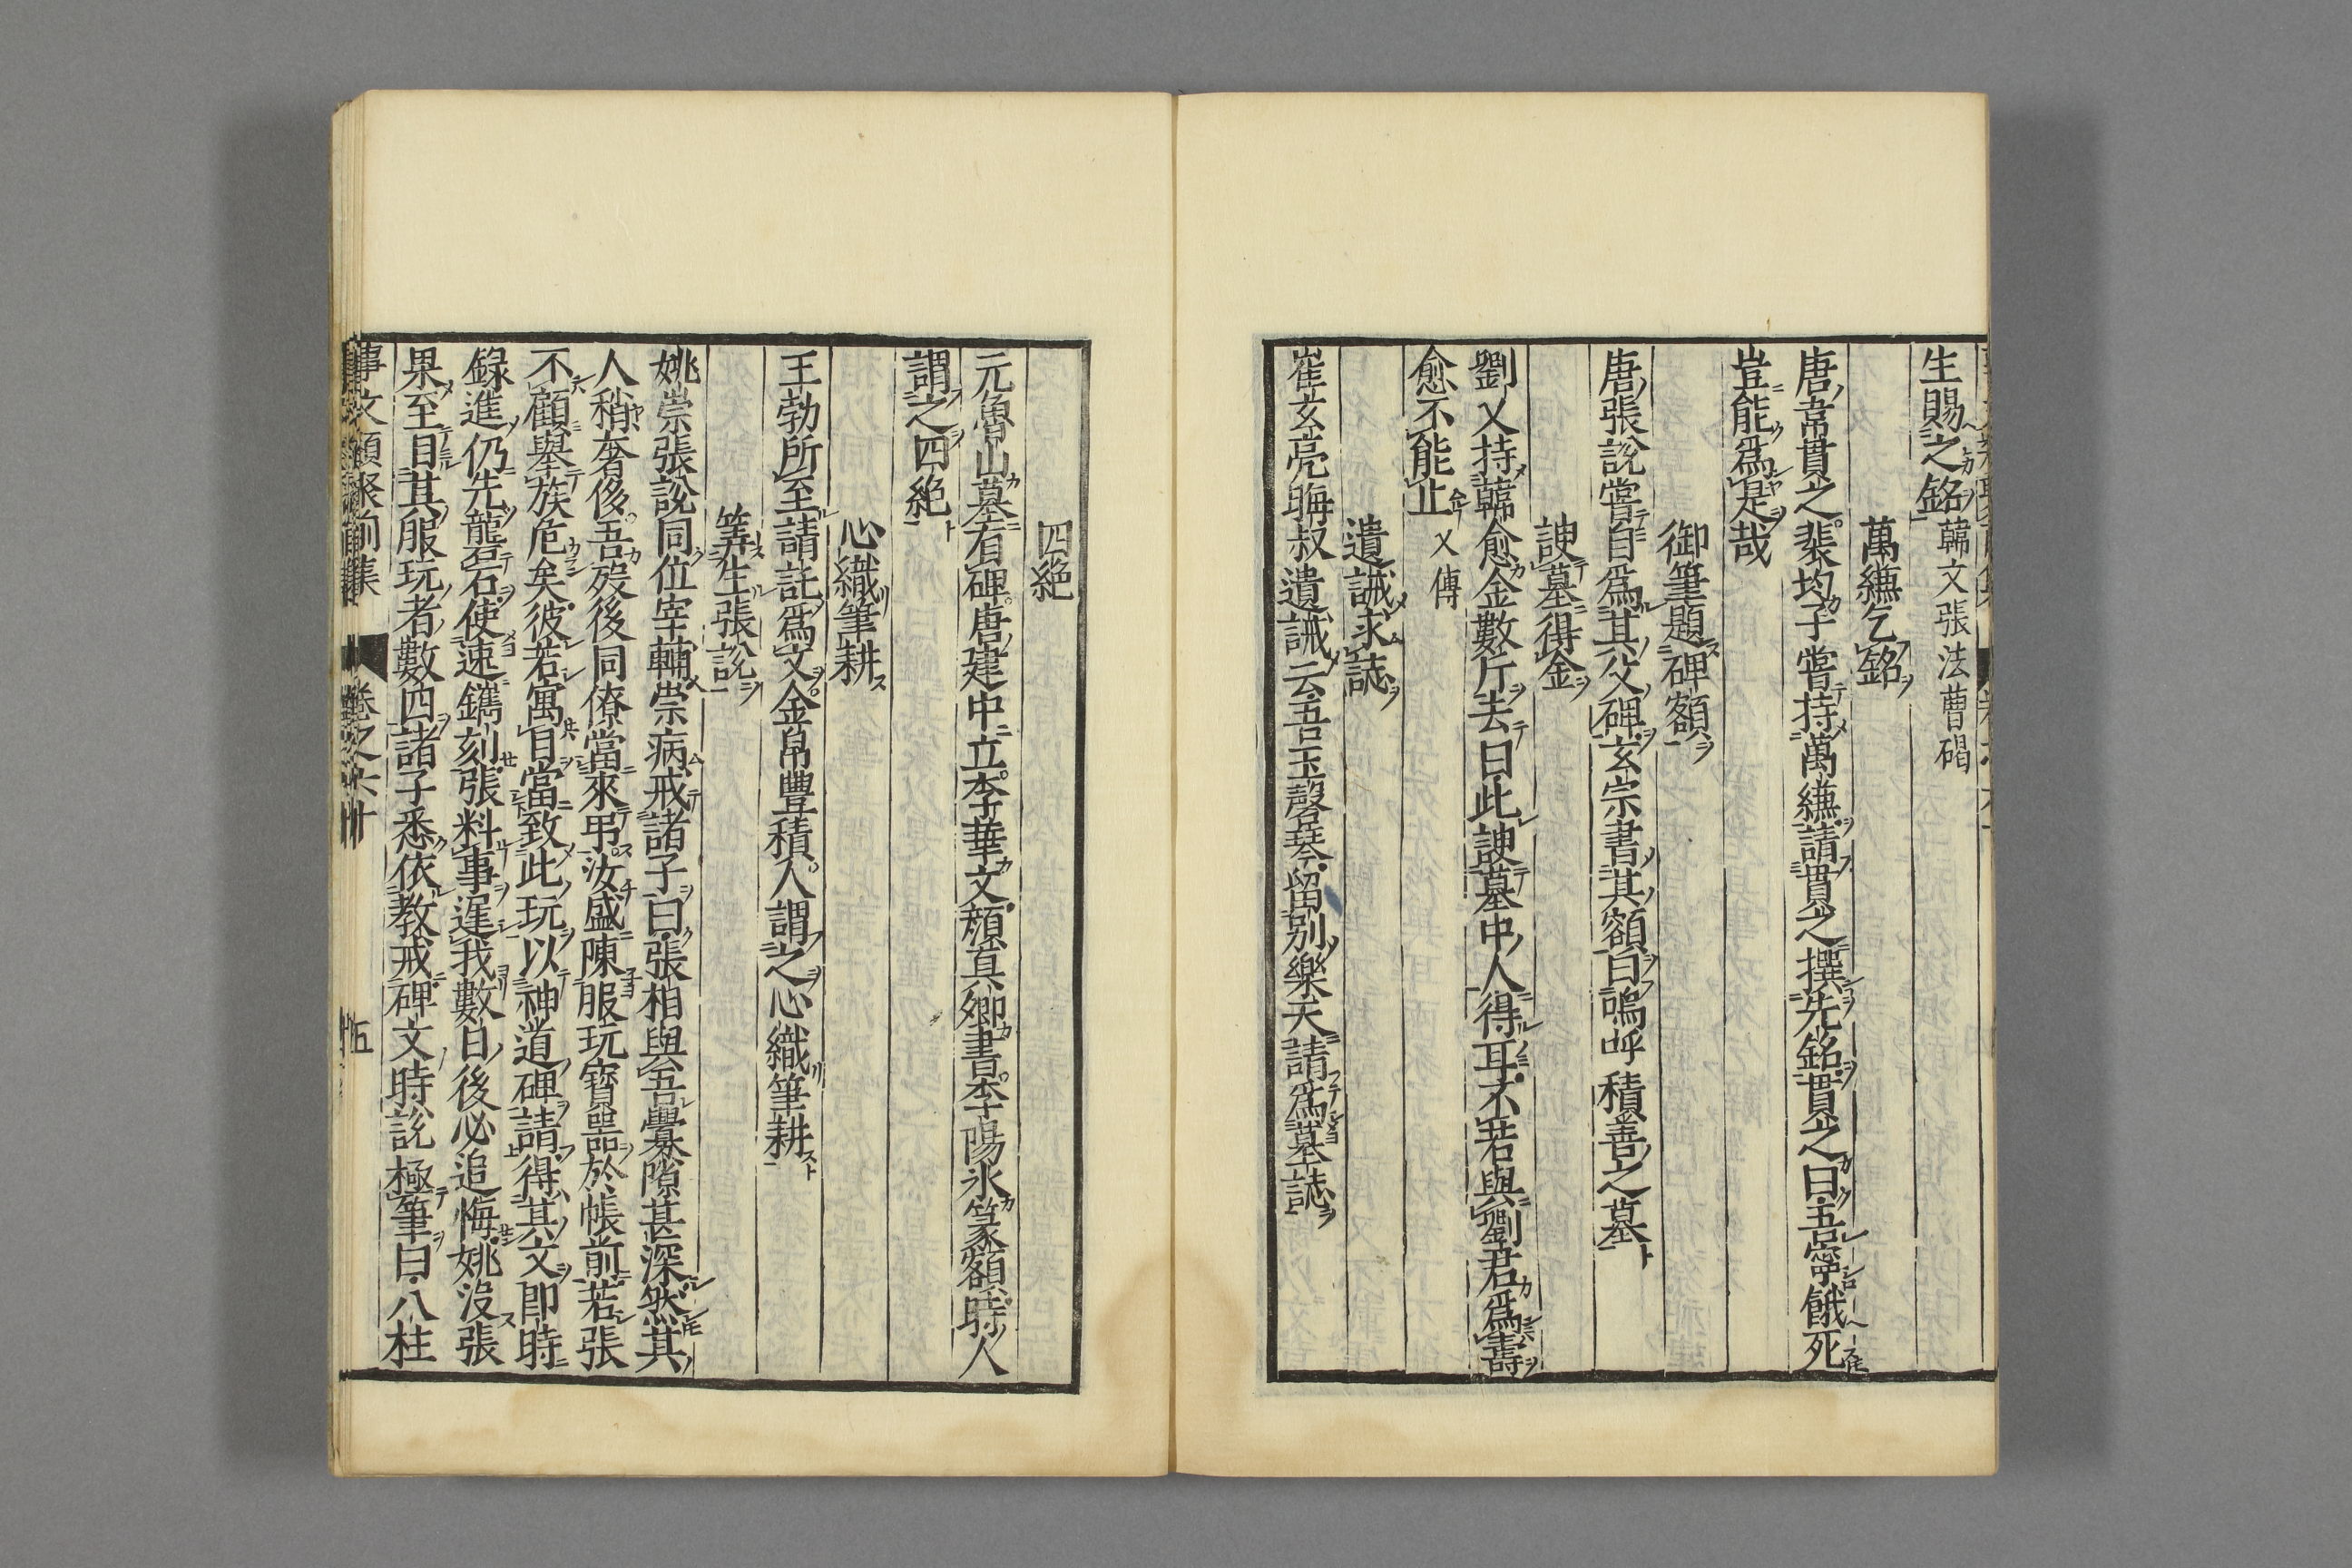 生賜之銘韓文張法曹碣
萬縑乞銘
唐韋貫之裴均子嘗持萬縑請貫之撰先銘貫之曰吾寧餓死
豈能爲是哉
御筆題碑額
唐張說嘗自爲其父碑玄宗書其額曰嗚呼積善之墓
諛墓得金
劉乂持韓愈金數斤去曰此諛墓中人得耳不若與劉君爲壽
愈不能止乂傳
遺誡求誌
崔玄亮晦叔遺誡云吾玉磬琴留別樂天請爲墓誌
四絶
元魯山墓有碑唐建中立李華文顏眞卿書李陽氷篆額時人
謂之四絶
心織筆耕
王勃所至請託爲文金帛豐積人謂之心織筆耕
筭生張說
姚崇張說同位宰輔崇病戒諸子曰張相與吾釁隙甚深然其
人稍奢侈吾歿後同僚當來弔汝盛陳服玩寶器於帳前若張
不顧舉族危矣彼若寓目當致此玩以神道碑請得其文即時
錄進仍先礱石使速鐫刻張料事遲我數日後必追悔姚沒張
果至目其服玩者數四諸子悉依教戒碑文時說極筆曰八柱
事文類聚前集 卷之六十 五